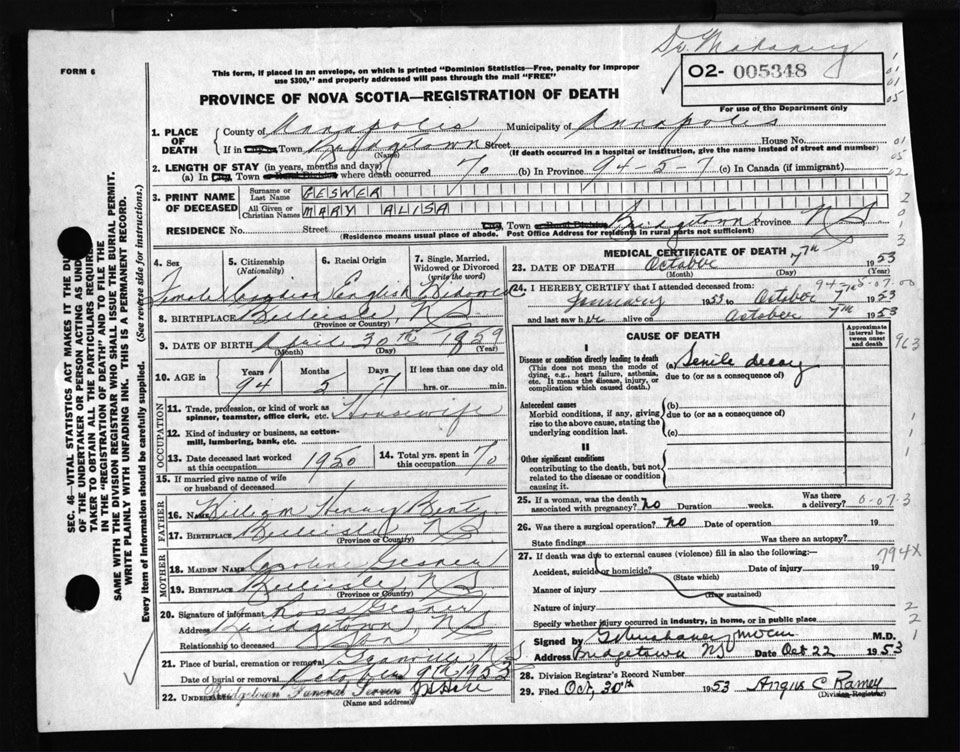 Dr. Mahaney
O2- 005348
FORM 6
This form, if placed in an envelope, on which is printed "Dominion Statistics—Free, penalty for improper
use $300," and properly addressed will pass through the mail "FREE"
For use of the Department only
PROVINCE OF NOVA SCOTIA—REGISTRATION OF DEATH
1. PLACE OF DEATH
County of Annapolis Municipality of Annapolis
If in City Town Bridgetown Street House No.
(Name) (If death occurred in a hospital or institution, give the name instead of street and number)
2. LENGTH OF STAY (in years, months and days)
(a) In City, Town or Rural Division where death occurred 70 (b) In Province 94-5-7 (c) In Canada (if immigrant)
3. PRINT NAME OF DECEASED
Surname or Last Name GESNER
All Given or Christian Names MARY ALISA
RESIDENCE No. Street City, Town or Rural Division Bridgetown Province NS
(Residence means usual place of abode. Post Office Address for residents in rural parts not sufficient)
4. Sex 5. Citizenship (Nationality) 6. Racial Origin 7. Single, Married, Widowed or Divorced (write the word)
Female Canadian English Widowed
8. BIRTHPLACE Belleisle, NS
(Province or Country)
9. DATE OF BIRTH April 30th 1859
(Month) (Day) (Year)
10. AGE in Years Months Days If less than one day old
94 5 7 hrs. or min.
OCCUPATION
11. Trade, profession, or kind of work as spinner, teamster, office clerk, etc. Housewife
12. Kind of industry or business, as cotton-mill, lumbering, bank, etc.
13. Date deceased last worked at this occupation 1950 14. Total yrs. spent in this occupation 70
15. If married give name of wife or husband of deceased
FATHER
16. NAME William Henry Bent
17. BIRTHPLACE Belleisle, NS
(Province or Country)
MOTHER
18. MAIDEN NAME Caroline Gesner
19. BIRTHPLACE Belleisle NS
(Province or Country)
20. Signature of informant Ross Gesner
Address Bridgetown, NS
Relationship to deceased Son
21. Place of burial, cremation or removal Granville NS
Date of burial or removal October 9th 1953
22. UNDERTAKER Bridgetown Funeral Service
(Name and address)
MEDICAL CERTIFICATE OF DEATH
23. DATE OF DEATH October 7th 1953
(Month) (Day) (Year)
24. I HEREBY CERTIFY that I attended deceased from:
January 1953 to October 7th 1953
and last saw her alive on October 7th 1953
CAUSE OF DEATH
Approximate interval between onset and death
I
Disease or condition directly leading to death (a) Senile decay
(This does not mean the mode of dying, e.g., heart failure, asthenia, etc. It means the disease, injury, or complication which caused death.)
due to (or as a consequence of)
Antecedent causes (b)
Morbid conditions, if any, giving rise to the above cause, stating the underlying condition last.
due to (or as a consequence of)
(c)
II
Other significant conditions
contributing to the death, but not related to the disease or condition causing it.
963
25. If a woman, was the death associated with pregnancy? no Duration weeks. Was there a delivery?
26. Was there a surgical operation? no Date of operation 19
State findings Was there an autopsy?
27. If death was due to external causes (violence) fill in also the following:
794X
Accident, suicide or homicide? Date of injury 19
(State which)
Manner of injury
(How sustained)
Nature of injury
Specify whether injury occurred in industry, in home, or in public place
Signed by M.D.
Address Bridgetown NS Date Oct 22 1953
28. Division Registrar's Record Number
29. Filed Oct, 30th 1953 Angus C Ramey
(Division Registrar)
SEC. 46—VITAL STATISTICS ACT MAKES IT THE DU
OF THE UNDERTAKER OR PERSON ACTING AS UND
TAKER TO OBTAIN ALL THE PARTICULARS REQUIRE
IN THE "REGISTRATION OF DEATH" AND TO FILE THE
SAME WITH THE DIVISION REGISTRAR WHO SHALL ISSUE THE BURIAL PERMIT.
WRITE PLAINLY WITH UNFADING INK. THIS IS A PERMANENT RECORD.
Every item of information should be carefully supplied. (See reverse side for instructions.)